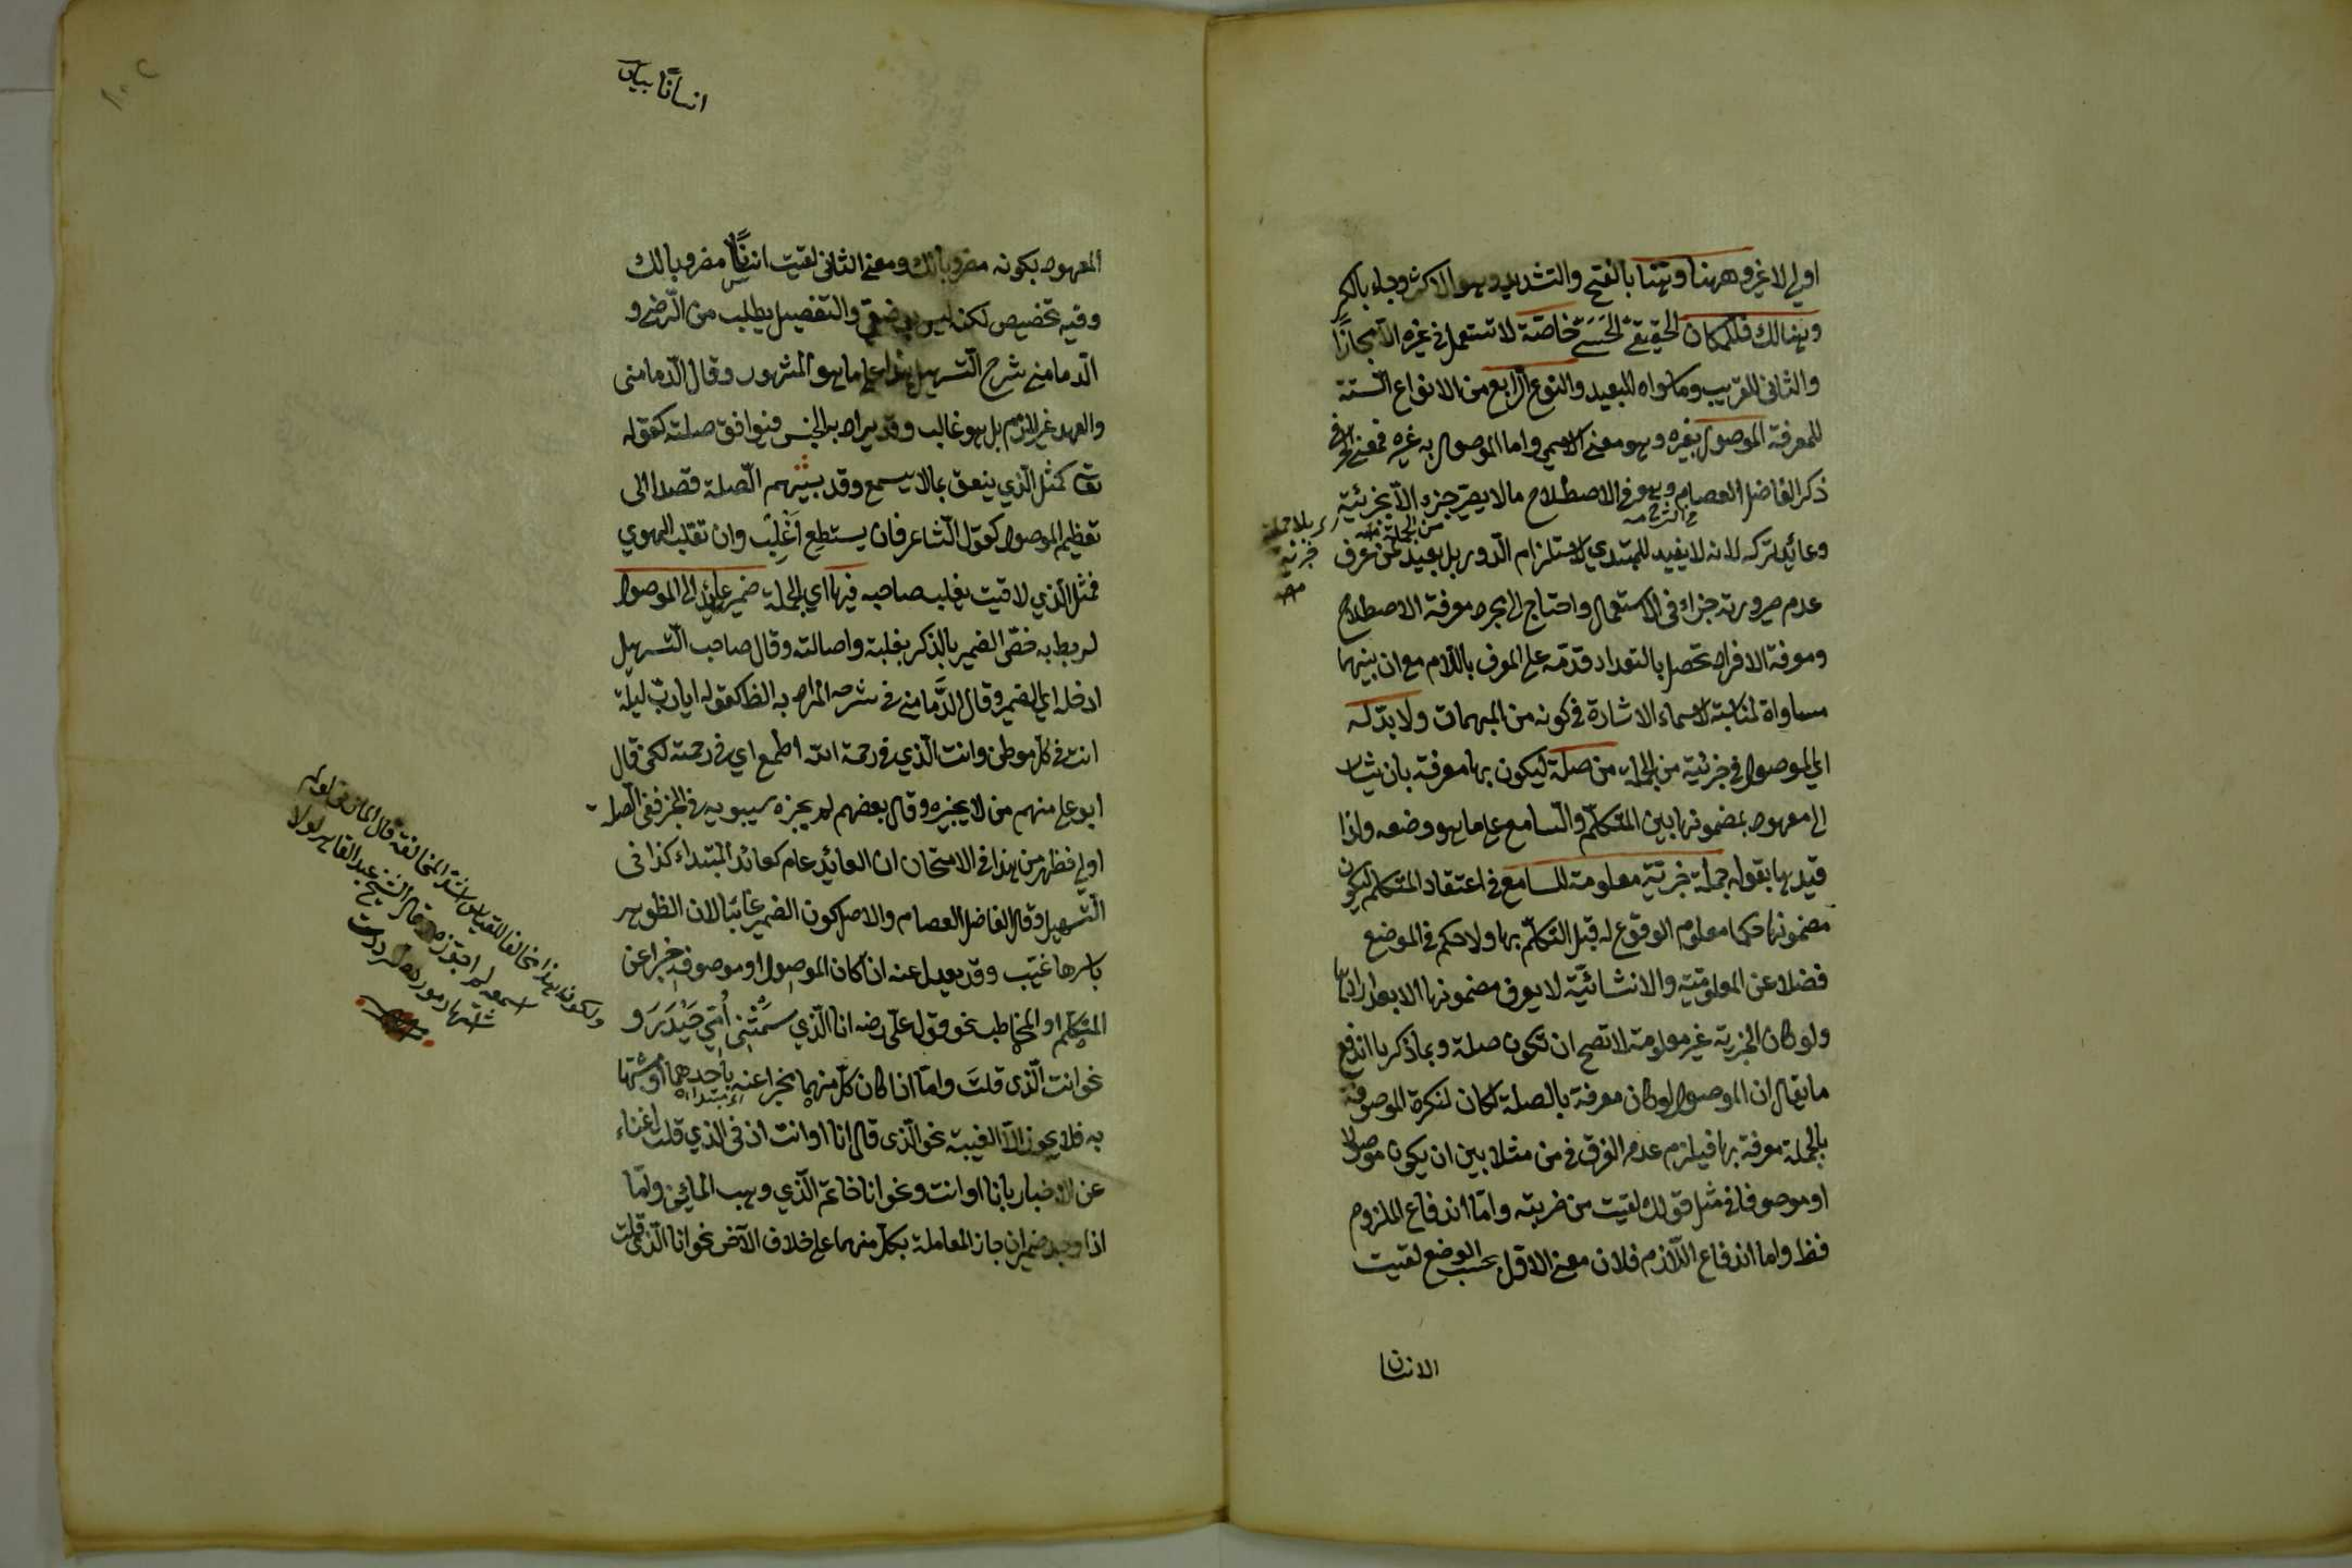 اولى لا غير وههنا وهنا بالفتح والتشديد وهو الاكثر وجاء بالكسر
وهنالك فللمكان الحقيقي الحسي خاصة لا تستعمل في غيره الا مجازا
والثاني للقريب وما سواه للبعيد والنوع الرابع من الانواع الستة
للمعرفة الموصول بغيره وهو معنى الاسمي واما الموصول به غيره فمعنى الحرفي
ذكر الفاضل العصام وهو في الاصطلاح ما لا يصير جزء الا بجزئية
في الشرح منه
من الجملة
اي بلا جملة
خبرية
منه
وعائد تركه لانه لا يفيد للمبتدي لاستلزام الدور بل يفيد لمن عرف
عدم صيرورته جزاء في الاستعمال واحتاج الى مجرد معرفة الاصطلاح
ومعرفة الافراد تحصل بالتعداد قدمه على المعرف باللام مع ان بينهما
مساواة لمناسبته لاسماء الاشارة في كونه من المبهمات ولا بد له
اي للموصول في جزئية من الجملة من صلة ليكون بها معرفة بان يشار
الى معهود بمضمونها بين المتكلم والسامع على ما هو وضعه ولذا
قيدها بقوله جملة خبرية معلومة للسامع في اعتقاد المتكلم ليكون
مضمونها حكما معلوم الوقوع له قبل التكلم بها ولا حكم في الموضع
فضلا عن المعلومية والانشائية لا يعرف مضمونها الا بعد ايرادها
ولو كان الخبرية غير معلومة لا تصح ان تكون صلة وبما ذكرنا اندفع
ما يقال ان الموصول لو كان معرفة بالصلة لكان لنكرة الموصوفة
بالجملة معرفة بها فيلزم عدم الفرق في من مثلا بين ان يكون موصولا
او موصوفا في مثل قولك لقيت من ضربته واما اندفاع الملزوم
فظ واما اندفاع اللازم فلان معنى الاول بحسب الوضع لقيت
الانسان
انسانا بيان
المعهود بكونه مضروبا لك ومعنى الثاني لقيت انسانا مضروبا لك
وفيه تخصيص لكنه ليس بوضعي والتفصيل يطلب من الرضي و
الدماميني شرح التسهيل هذا على ما هو المشهور وقال الدماميني
والعهد غير لازم بل هو غالب وقد يراد به الجنس فيوافق صلته كقوله
تعالى كمثل الذي ينعق بما لا يسمع وقد يبهم الصلة قصدا الى
تعظيم الموصول كقول الشاعر فان يستطع اغلب وان تغلب الهوى
فمثل الذي لاقيت يغلب صاحبه فيها اي الجملة ضمير عائد الى الموصول
لربط به فخص الضمير بالذكر بغلبة واصالته وقال صاحب التسهيل
ادخله اي الضمير وقال الدماميني في شرحه المراد به الظاهر كقوله ايا رب ليلة
انت في كل موطن وانت الذي في رحمة الله اطمع اي في رحمته لكن قال
ابو علي منهم من لا يجيزه وقال بعضهم لم يجزه سيبويه في الخبر ففي الصلة
اولى فظهر من هذا في الامتحان ان العائد عام كعائد المبتداء كذا في
التسهيل وقال الفاضل العصام والاصل كون الضمير غائبا لان الظواهر
باسرها غيب وقد يعدل عنه ان كان الموصول او موصوفه خبرا عن
المتكلم او المخاطب نحو قول علي رضه انا الذي سمتني امي حيدره و
نحو انت الذي قلت واما ان كان كل منهما مخبرا عنه باحدهما او مشبها
اي مبتداء
به فلا يجوز الا الغيبة نحو الذي قال انا او انت اذ في الذي قلت اغناء
عن الاخبار بانا او انت ونحو انا خاتم الذي وهب المائين واما
اذا وجد ضميران جاز المعاملة بكل منهما على خلاف الآخر نحو انا الذي قلت
ولكون هذا مخالفا للقياس اشد المخالفة قال المازني لولا
اسمعه لم اجوزه وقال الشيخ عبد القاهر لولا
اشتهار مورده لرددت